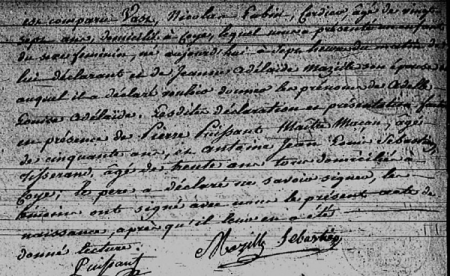 est comparu Vast, Nicolas Fabin, Cordier, âgé de vingt
sept ans, domicilié à Coye, lequel nous a présenté un enfant
du sexe féminin, né aujourd'hui à sept heures du matin de
lui déclarant et de Jeanne Adélaïde Mazille son épouse et
auquel il a déclaré vouloir donner les prénoms de Adèle
Louise Adélaïde. Lesdites déclaration et présentation faites
en présence de Pierre Puissant, Maître Maçon, agé
de cinquante ans, et Antoine Jean Sébastien
agé de trente ans tous domiciliés à
Coye; le père a déclaré ne savoir signer, les
témoins ont signé avec nous le présent acte de
naissance, après qu'il leur en a été
donné lecture.
Puissant Mazille Sebastien